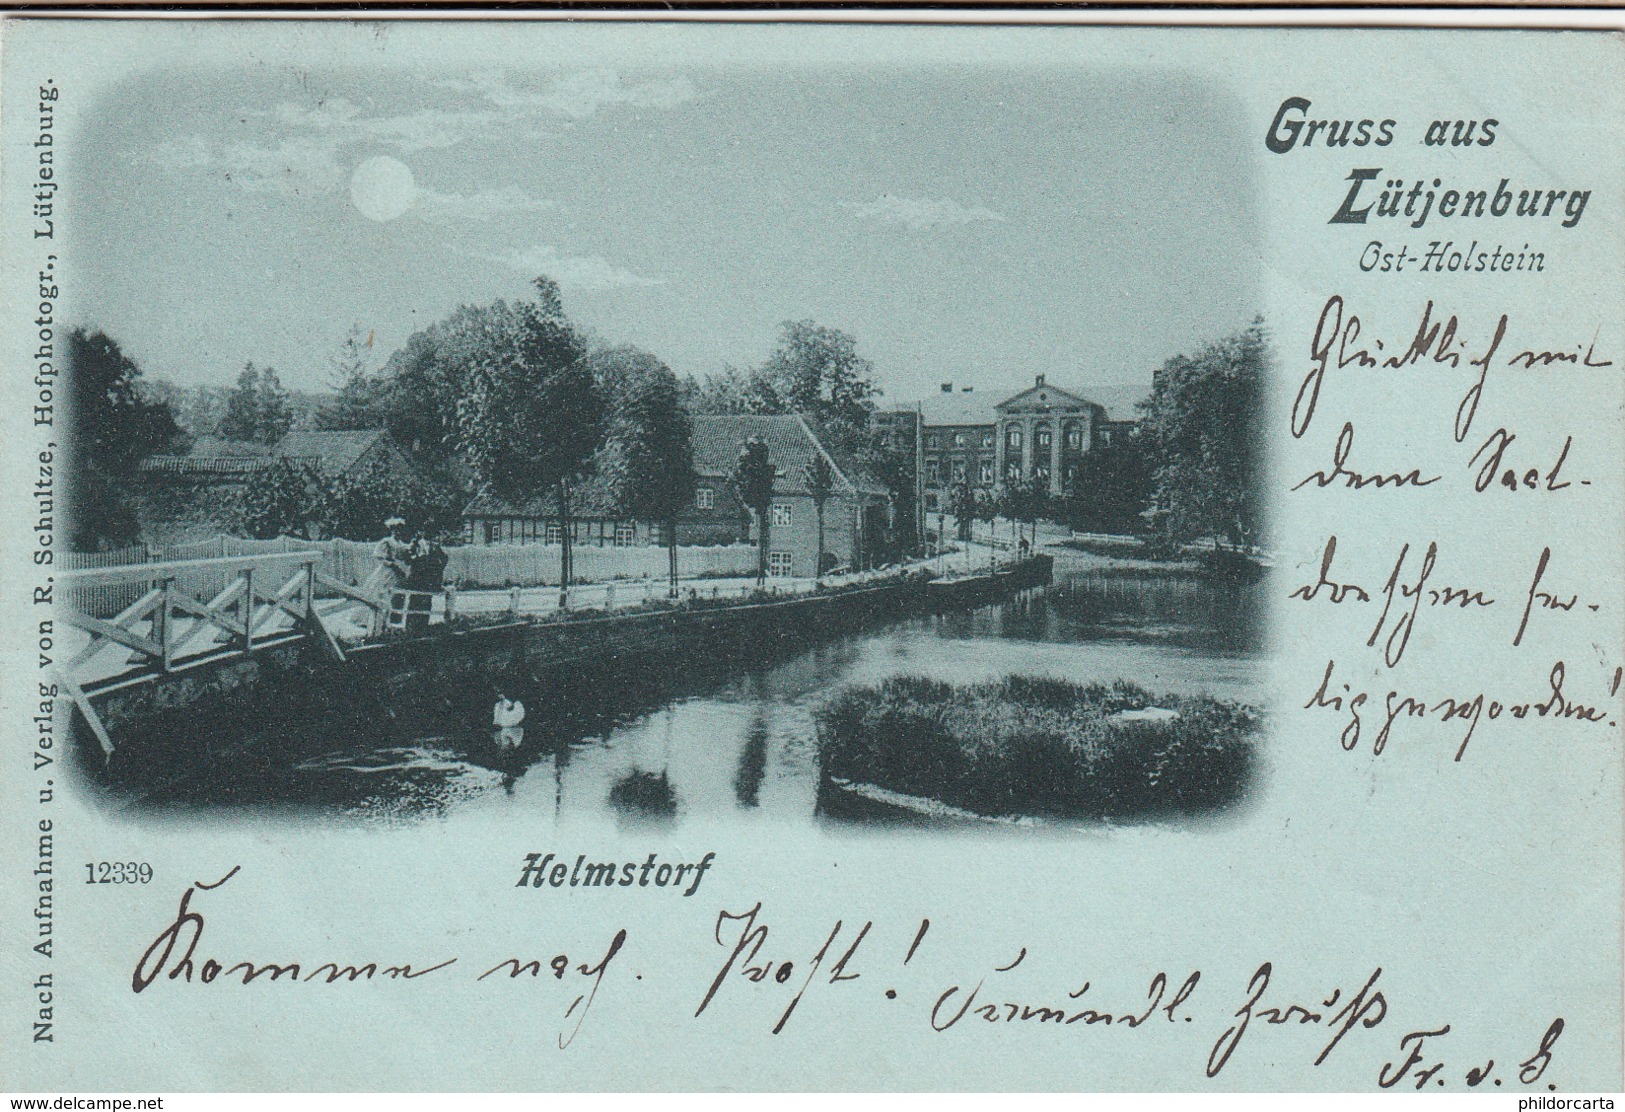 Nach Aufnahme u. Verlag von R. Schultze, Hofphotogr., Lütjenburg.
Gruss aus
Lütjenburg
Ost-Holstein
Glücklich mit
dem Saat-
dreschen fer-
tig geworden!
12339
Helmstorf
Komme nach. Prost!
Freundl. Gruß
Fr. v. B.
www.delcampe.net
phildorcarta